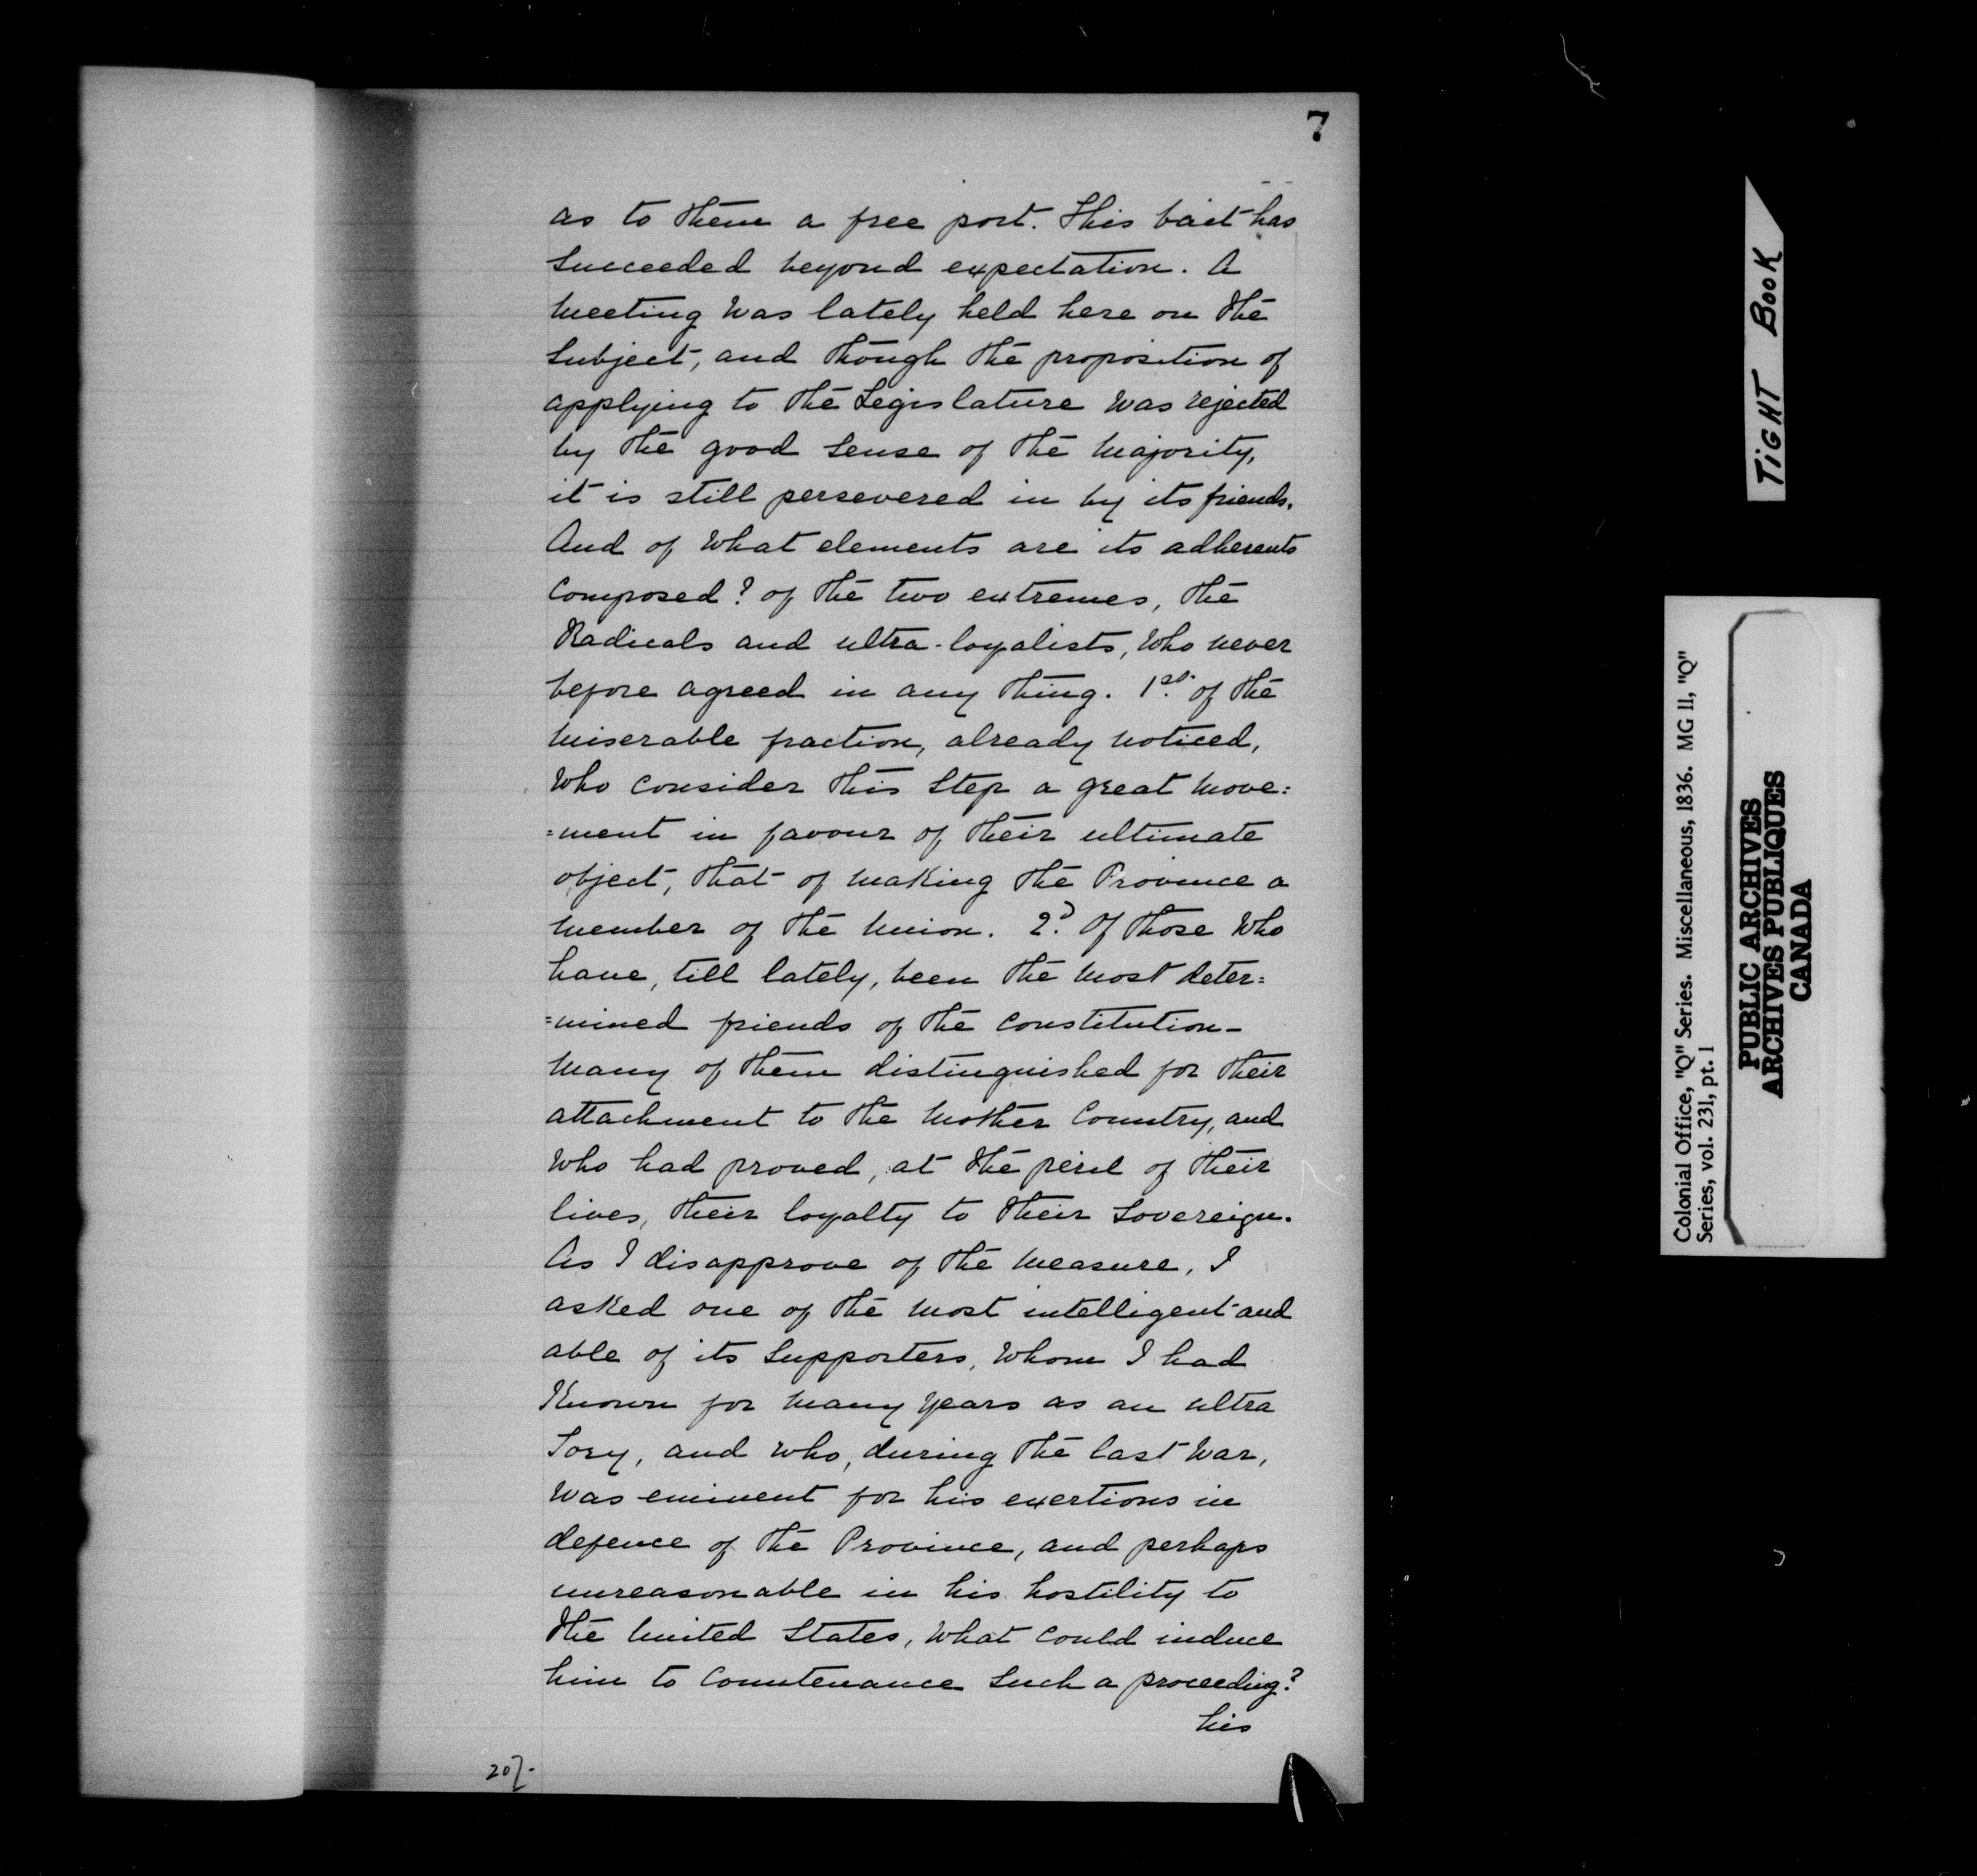 7
as to them a free port. This bait has
succeeded beyond expectation. A
meeting was lately held here on the
subject, and though the proposition of
applying to the Legislature was rejected
by the good sense of the majority,
it is still persevered in by its friends.
And of what elements are its adherents
composed? of the two extremes, the
Radicals and ultra-loyalists, who never
before agreed in any thing. 1st. of the
miserable fraction, already noticed,
who consider this step a great move:
=ment in favour of their ultimate
object, that of making the Province a
member of the Union. 2d. Of those who
have, till lately, been the most deter=
=mined friends of the constitution-
many of them distinguished for their
attachment to the Mother Country, and
who had proved, at the peril of their
lives, their loyalty to their Sovereign.
As I disapprove of the measure, I
asked one of the most intelligent and
able of its supporters, whom I had
Known for many years as an ultra
Tory, and who, during the last war,
was eminent for his exertions in
defence of the Province, and perhaps
unreasonable in his hostility to
the United States, what could induce
him to countenance such a proceeding?
his
207-
TIGHT BOOK
Colonial Office, "Q" Series. Miscellaneous, 1836. MG 11, "Q"
Series, vol. 231, pt. 1
PUBLIC ARCHIVES
ARCHIVES PUBLIQUES
CANADA